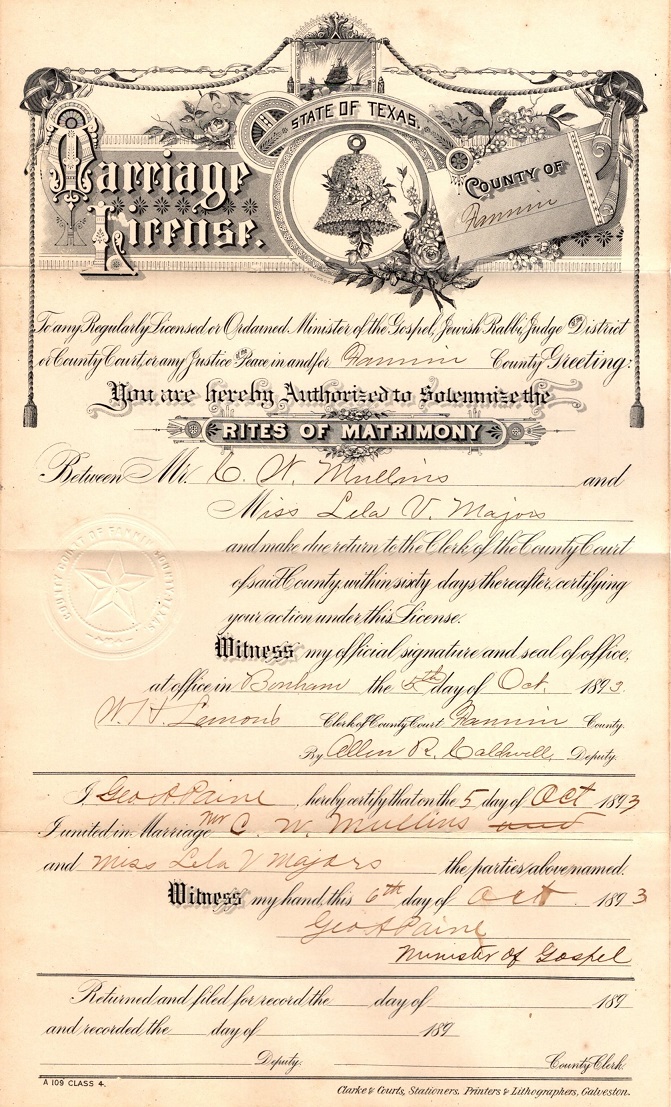 STATE OF TEXAS.
Marriage License.
COUNTY OF
Fannin
To any Regularly Licensed or Ordained Minister of the Gospel, Jewish Rabbi, Judge of the District
or County Court, or any Justice of the Peace in and for Fannin County Greeting:
You are hereby Authorized to Solemnize the
RITES OF MATRIMONY
Between Mr. C. W. Mullins and
Miss Lela V. Majors
and make due return to the Clerk of the County Court
of said County, within sixty days thereafter, certifying
your action under this License.
COUNTY COURT OF FANNIN COUNTY TEXAS
Witness my official signature and seal of office,
at office in Bonham the 5th day of Oct. 1893.
W. H. Lemons Clerk of County Court Fannin County.
By Allen R. Caldwell Deputy.
I, Geo A. Paine, hereby certify that on the 5 day of Oct 1893
I united in Marriage Mr C. W. Mullins and
and Miss Lela V Majors the parties above named.
Witness my hand, this 6th day of Oct. 1893
Geo A Paine
Minister of Gospel
Returned and filed for record the day of 189
and recorded the day of 189
Deputy. County Clerk.
A 109 CLASS 4.
Clarke & Courts, Stationers, Printers & Lithographers, Galveston.